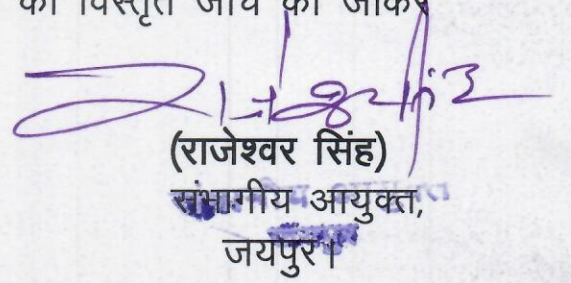 की विस्तृत जांच की जाकर
(राजेश्वर सिंह)
संभागीय आयुक्त,
जयपुर।